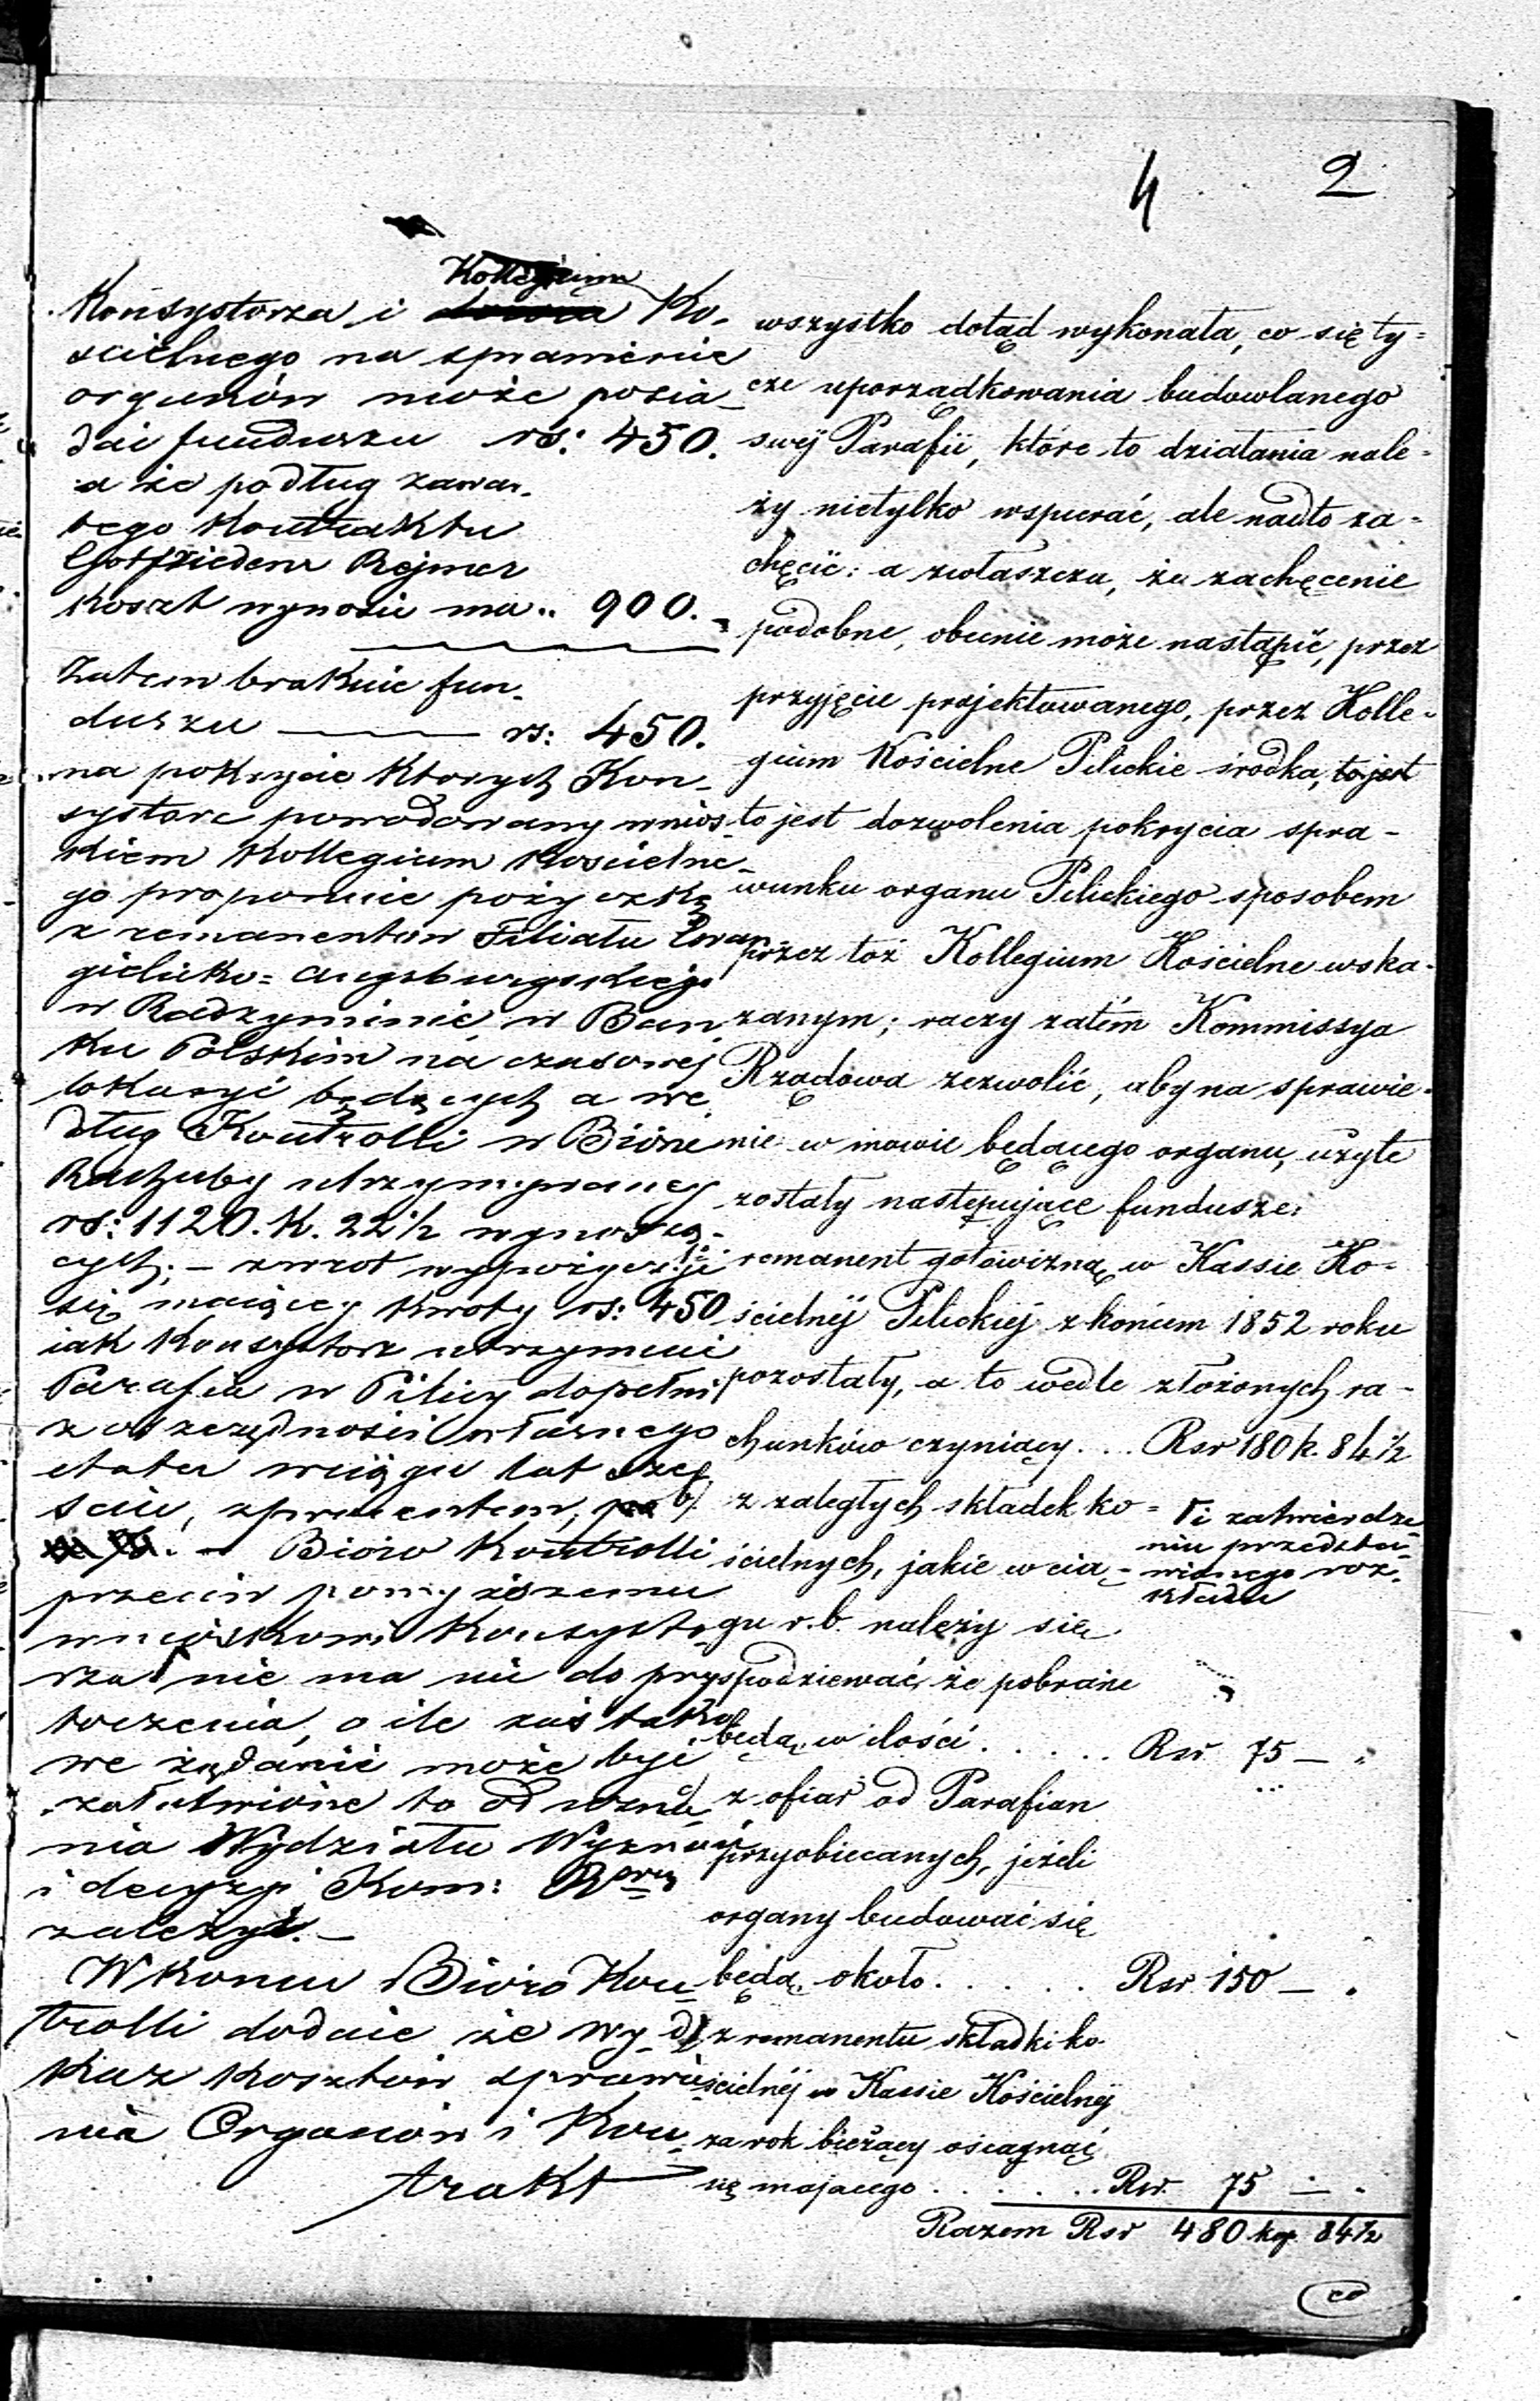 4 2
Kollegium
Konsystorza i Ko-
ścielnego na sprawienie
organów może posia-
dać funduszu rs: 450.
a że podług zawar-
tego Kontraktu
Gottfriedem Rejmer
koszt wynosić ma „ 900.
Zatem braknie fun-
duszu — rs: 450.
na pokrycie których Kon-
systorz powodowany wnios-
kiem Kollegium Kościelne-
go proponuje pożyczkę
z remanentów Filiału Ewan-
gielicko-Augsburgskiego
w Radzyminie w Ban-
ku Polskim na czasowej
lokacyi będących a we-
dług Kontrolli w Biórze
Rachuby utrzymywanej
rs: 1120. K. 22½ wynoszą-
cych; – zwrot wypożyczyć
się mającej kwoty rs: 450
jak Konsystorz utrzymuje
Parafia w Pilicy dopełni
z oszczędności własnego
etatu wciągu lat sze-
ściu, z procentem,
Bióro Kontrolli
przeciw powyższemu
wnioskowi Konsysto-
rza nie ma nic do przy-
toczenia, o ile zaś tako-
we żądanie może być
załatwione to od uzna-
nia Wydziału Wyznań
i decyzyi Kom: Rządowej
zależy. –
W końcu Bióro Kon-
trolli dodaje że wy-
kaz kosztów sprawie-
nia Organów i Kon-
trakt
wszystko dotąd wykonała, co się ty-
cze uporządkowania budowlanego
swéj Parafii, które to działania nale-
ży nietylko wspierać, ale nadto za-
chęcić: a zwłaszcza, że zachęcenie
podobne, obecnie może nastąpić, przez
przyjęcie projektowanego, przez Kolle-
gium Kościelne Pilickie środka, to jest
to jest dozwolenia pokrycia spra-
wunku organu Pilickiego sposobem
przez toż Kollegium Kościelne wska-
zanym; raczy zatém Kommissya
Rządowa zezwolić, aby na sprawie-
nie w mowie będącego organu, użyte
zostały następujące fundusze:
1º remanent gotowizną w Kassie Ko-
ścielnéj Pilickiej z końcem 1852 roku
pozostały, a to wedle złożonych ra-
chunków czyniący... Rsr 180 k. 84½
b/ z zaległych składek ko-
ścielnych, jakie w cią-
gu r.b. należy się
spodziewać, że pobrane
będą w ilości..... Rsr 75 — „
i zatwierdze-
niu przedsta-
wionego roz-
kładu
c/ z ofiar od Parafian
przyobiecanych, jeżeli
organy budować się
będą około..... Rsr 150 — „
d/ z remanentu składki ko-
ścielnéj w Kassie Kościelnéj
za rok bieżący osiągnąć
się mającego...... Rsr. 75 — „
Razem Rsr 480 kop 84½
co